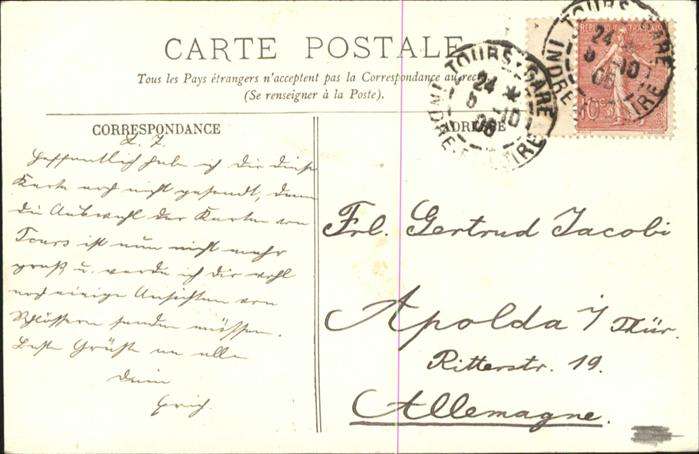 CARTE POSTALE
Tous les Pays étrangers n'acceptent pas la Correspondance au recto
(Se renseigner à la Poste).
CORRESPONDANCE
ADRESSE
TOURS-GARE
24 *
5 -10
06
INDRE-ET-LOIRE
TOURS-GARE
24 *
5 -10
06
INDRE LOIRE
10c
L. T.
Hoffentlich habe ich dir diese
Karte noch nicht gesandt, denn
die Auswahl der Karten von
Tours ist nun nicht mehr
groß u. werde ich dir wohl
noch einige Ansichten von
Schlössern senden müssen.
Beste Grüße an alle
Dein
Erich.
Frl. Gertrud Jacobi
Apolda i/ Thür.
Ritterstr. 19.
Allemagne.